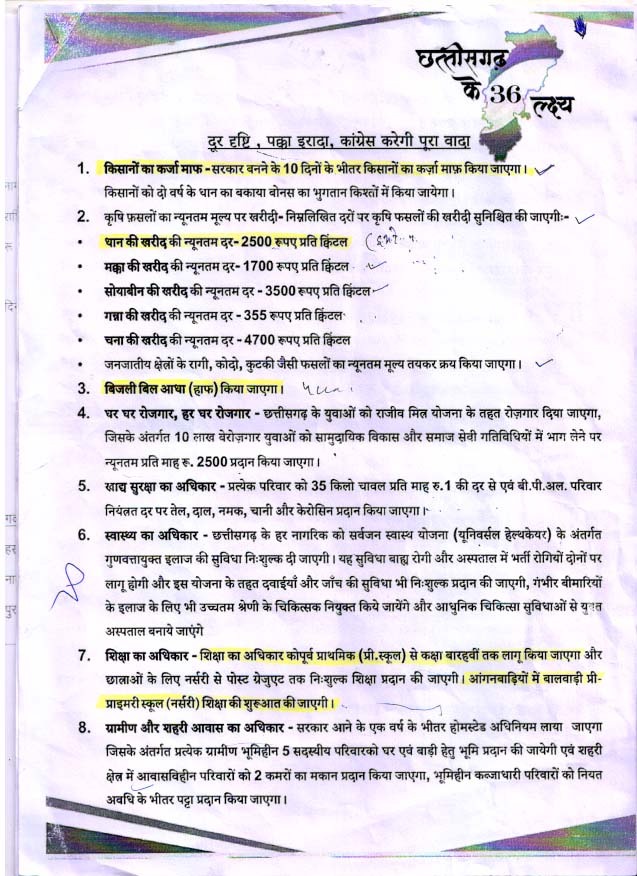 छत्तीसगढ़
के 36 लक्ष्य
दूर दृष्टि , पक्का इरादा, कांग्रेस करेगी पूरा वादा
1. किसानों का कर्जा माफ - सरकार बनने के 10 दिनों के भीतर किसानों का कर्ज़ा माफ़ किया जाएगा।
किसानों को दो वर्ष के धान का बकाया बोनस का भुगतान किश्तों में किया जायेगा।
2. कृषि फ़सलों का न्यूनतम मूल्य पर खरीदी- निम्नलिखित दरों पर कृषि फसलों की खरीदी सुनिश्चित की जाएगीः-
• धान की खरीद की न्यूनतम दर- 2500 रूपए प्रति क्विंटल
• मक्का की खरीद की न्यूनतम दर - 1700 रूपए प्रति क्विंटल
• सोयाबीन की खरीद की न्यूनतम दर - 3500 रूपए प्रति क्विंटल
• गन्ना की खरीद की न्यूनतम दर - 355 रूपए प्रति क्विंटल
• चना की खरीद की न्यूनतम दर - 4700 रूपए प्रति क्विंटल
• जनजातीय क्षेत्रों के रागी, कोदो, कुटकी जैसी फसलों का न्यूनतम मूल्य तयकर क्रय किया जाएगा।
3. बिजली बिल आधा (हाफ) किया जाएगा।
4. घर घर रोजगार, हर घर रोजगार - छत्तीसगढ़ के युवाओं को राजीव मित्र योजना के तहत रोज़गार दिया जाएगा,
जिसके अंतर्गत 10 लाख बेरोज़गार युवाओं को सामुदायिक विकास और समाज सेवी गतिविधियों में भाग लेने पर
न्यूनतम प्रति माह रू. 2500 प्रदान किया जाएगा।
5. खाद्य सुरक्षा का अधिकार - प्रत्येक परिवार को 35 किलो चावल प्रति माह रु.1 की दर से एवं बी.पी.अल. परिवार
नियंत्रत दर पर तेल, दाल, नमक, चानी और केरोसिन प्रदान किया जाएगा।
6. स्वास्थ्य का अधिकार - छत्तीसगढ़ के हर नागरिक को सर्वजन स्वास्थ योजना (यूनिवर्सल हेल्थकेयर) के अंतर्गत
गुणवत्तायुक्त इलाज की सुविधा निःशुल्क दी जाएगी। यह सुविधा बाह्य रोगी और अस्पताल में भर्ती रोगियों दोनों पर
लागू होगी और इस योजना के तहत दवाईयाँ और जाँच की सुविधा भी निःशुल्क प्रदान की जाएगी, गंभीर बीमारियों
के इलाज के लिए भी उच्चतम श्रेणी के चिकित्सक नियुक्त किये जायेंगे और आधुनिक चिकित्सा सुविधाओं से युक्त
अस्पताल बनाये जाएंगे
7. शिक्षा का अधिकार - शिक्षा का अधिकार कोपूर्व प्राथमिक (प्री.स्कूल) से कक्षा बारहवीं तक लागू किया जाएगा और
छात्राओं के लिए नर्सरी से पोस्ट ग्रेजुएट तक निःशुल्क शिक्षा प्रदान की जाएगी। आंगनबाड़ियों में बालवाड़ी प्री-
प्राइमरी स्कूल (नर्सरी) शिक्षा की शुरूआत की जाएगी।
8. ग्रामीण और शहरी आवास का अधिकार - सरकार आने के एक वर्ष के भीतर होमस्टेड अधिनियम लाया जाएगा
जिसके अंतर्गत प्रत्येक ग्रामीण भूमिहीन 5 सदस्यीय परिवारको घर एवं बाड़ी हेतु भूमि प्रदान की जायेगी एवं शहरी
क्षेत्र में आवासविहीन परिवारों को 2 कमरों का मकान प्रदान किया जाएगा, भूमिहीन कब्जाधारी परिवारों को नियत
अवधि के भीतर पट्टा प्रदान किया जाएगा।